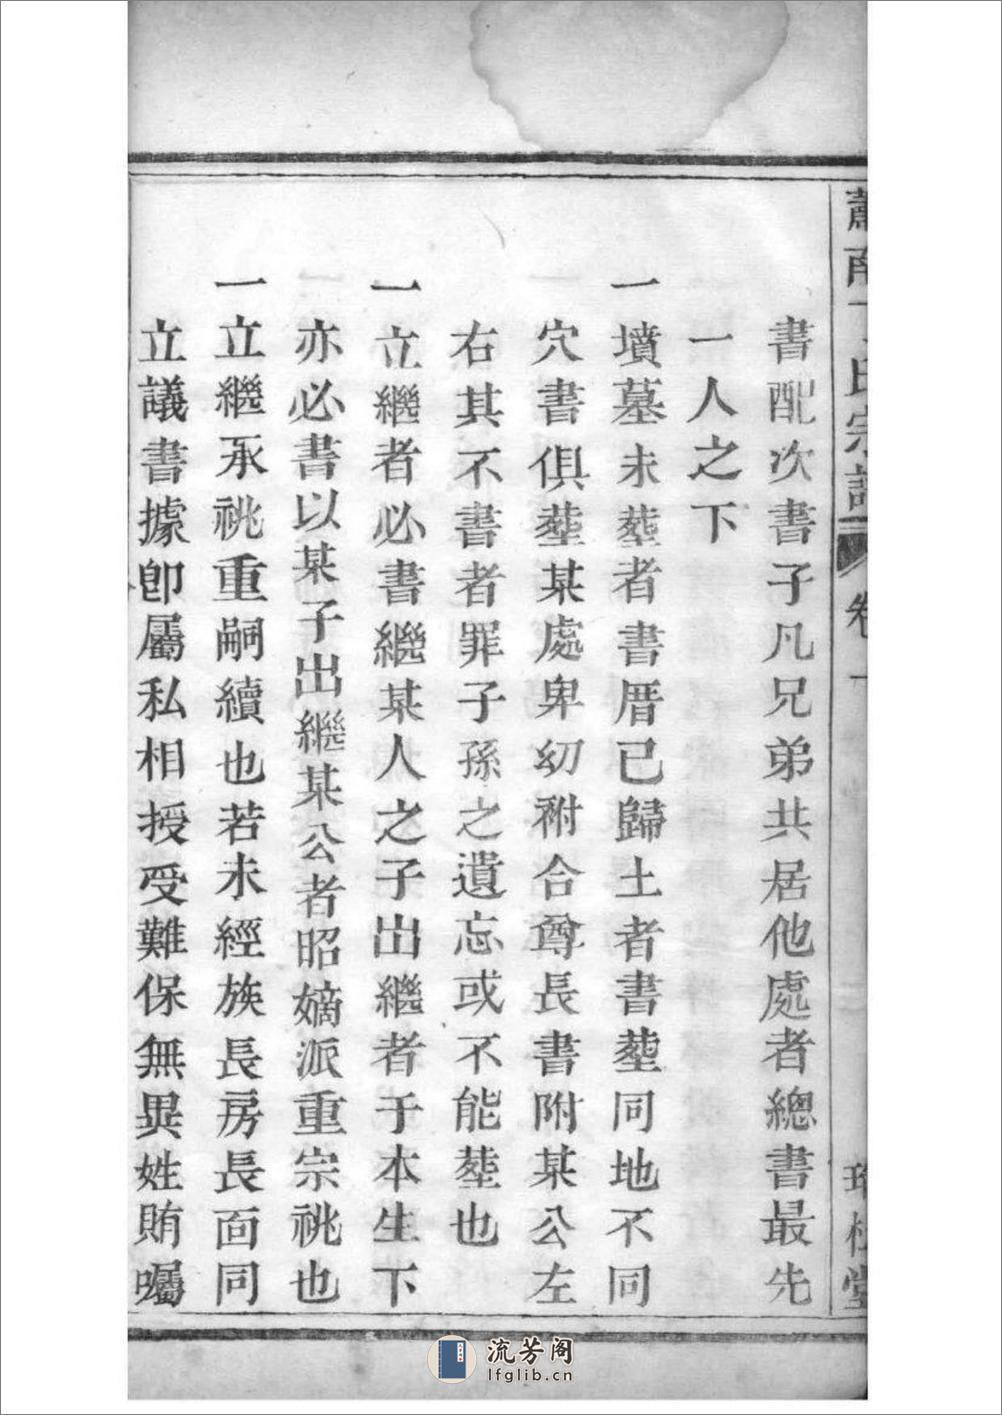 書配次書子凡兄弟共居他處者總書最先
一人之下
一墳墓未葬者書厝已歸土者書塟同地不同
穴書俱塟某處卑幼祔合尊長書附某公左
右其不書者罪子孫之遺忘或不能塟也
一立繼者必書繼某人之子出繼者于本生下
亦必書以某子出繼某公者昭嫡派重宗祧也
一立繼承祧重嗣續也若未經族長房長面同
立議書據卽屬私相授受難保無異姓賄囑
氏宗譜 卷一
堂
流芳阁
lfglib.cn